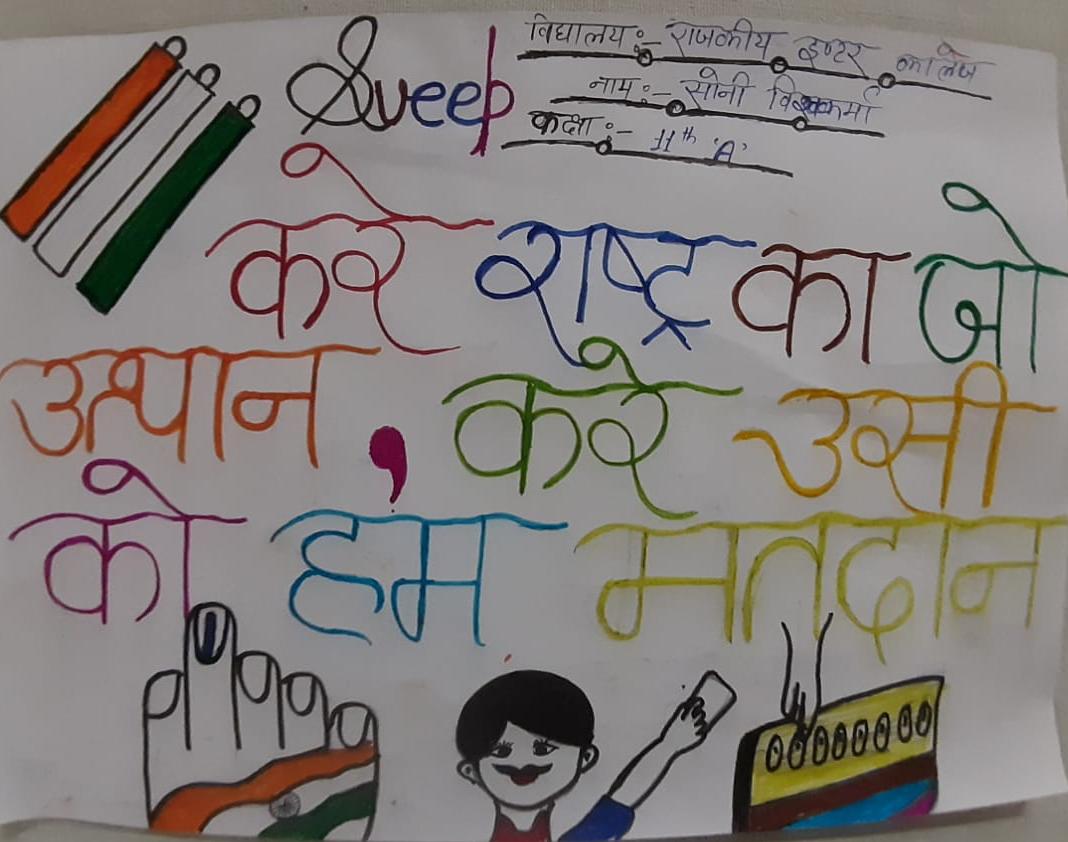 Sveep
विद्यालय :- राजकीय इण्टर कालेज
नाम :- सोनी विश्वकर्मा
कक्षा :- 11th 'A'
करे राष्ट्र का जो
उत्थान , करे उसी
को हम मतदान